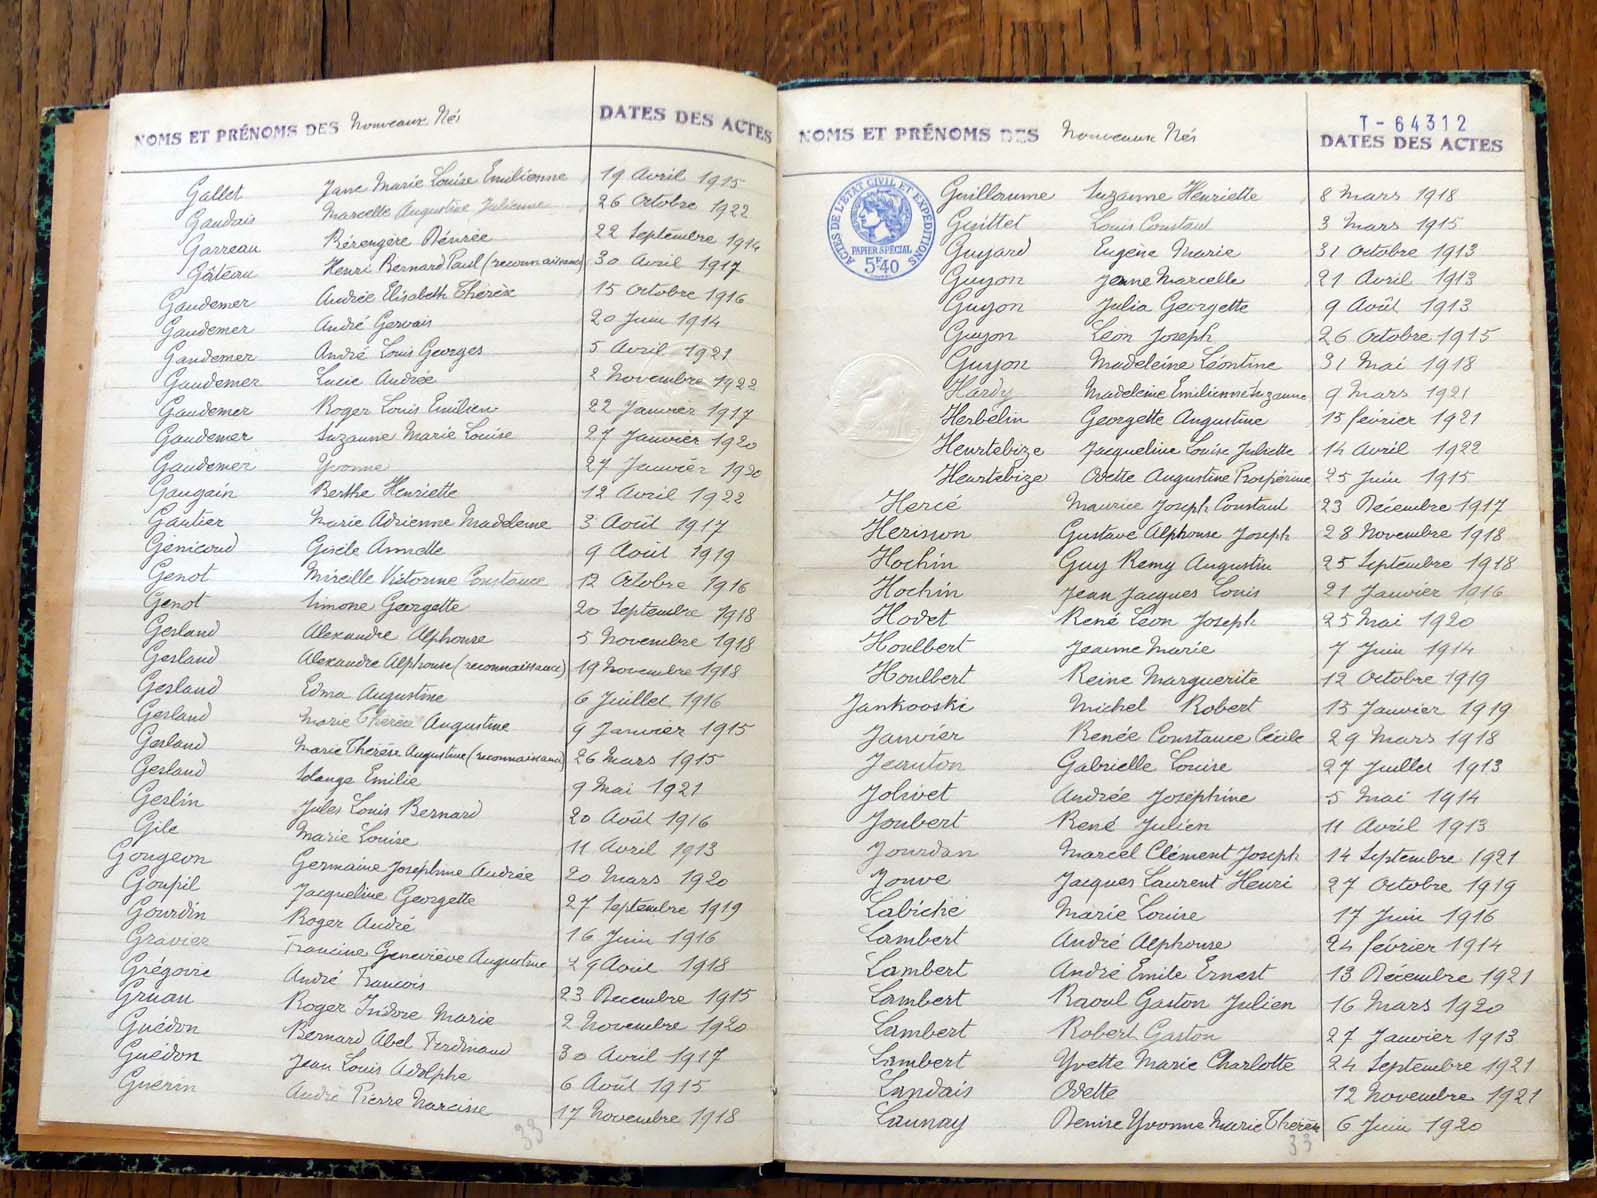 NOMS ET PRÉNOMS DES Nouveaux Nés DATES DES ACTES
Gallet Jane Marie Louise Emilienne 19 Avril 1915
Gaudais Marcelle Augustine Julienne 26 Octobre 1922
Garreau Bérengère Désirée 22 Septembre 1914
Gâteau Henri Bernard Paul (reconnaissance) 30 Avril 1917
Gaudemer Andrée Elisabeth Thérèse 15 Octobre 1916
Gaudemer André Gervais 20 Juin 1914
Gaudemer André Louis Georges 5 Avril 1921
Gaudemer Lucie Andrée 2 Novembre 1922
Gaudemer Roger Louis Emilien 22 Janvier 1917
Gaudemer Suzanne Marie Louise 27 Janvier 1920
Gaudemer Yvonne 27 Janvier 1920
Gaugain Berthe Henriette 12 Avril 1922
Gautier Marie Adrienne Madeleine 3 Août 1917
Génicoud Gisèle Annette 9 Août 1919
Genot Mireille Victorine Constance 12 Octobre 1916
Genot Simone Georgette 20 Septembre 1918
Gesland Alexandre Alphonse 5 Novembre 1918
Gesland Alexandre Alphonse (reconnaissance) 19 Novembre 1918
Gesland Edma Augustine 6 Juillet 1916
Gesland Marie Thérèse Augustine 9 Janvier 1915
Gesland Marie Thérèse Augustine (reconnaissance) 26 Mars 1915
Gesland Solange Emilie 9 Mai 1921
Geslin Jules Louis Bernard 20 Août 1916
Gile Marie Louise 11 Avril 1913
Gougeon Germaine Joséphine Andrée 20 Mars 1920
Goupil Jacqueline Georgette 27 Septembre 1919
Gourdin Roger André 16 Juin 1916
Gravier Francine Geneviève Augustine 29 Avril 1918
Grégoire André François 23 Décembre 1915
Gruau Roger Isidore Marie 2 Novembre 1920
Guédon Bernard Abel Ferdinand 30 Avril 1917
Guédon Jean Louis Adolphe 6 Août 1915
Guérin André Pierre Narcisse 17 Novembre 1918
33
T-64312
NOMS ET PRÉNOMS DES Nouveaux Nés DATES DES ACTES
ACTES DE L'ÉTAT CIVIL ET EXPÉDITIONS
PAPIER SPÉCIAL
5F40
Guilloume Suzanne Henriette 8 Mars 1918
Guittet Louis Constant 3 Mars 1915
Guyard Eugène Marie 31 Octobre 1913
Guyon Jeanne Marcelle 21 Avril 1913
Guyon Julia Georgette 9 Août 1913
Guyon Léon Joseph 26 Octobre 1915
Guyon Madeleine Léontine 31 Mai 1918
Hardy Madeleine Emilienne Suzanne 9 Mars 1921
Herbelin Georgette Augustine 15 février 1921
Heurtebize Jacqueline Louise Juliette 14 Avril 1922
Heurtebize Odette Augustine Prospérine 25 Juin 1915
Hercé Maurice Joseph Constant 23 Décembre 1917
Herisson Gustave Alphonse Joseph 28 Novembre 1918
Hochin Guy Remy Augustin 25 Septembre 1918
Hochin Jean Jacques Louis 21 Janvier 1916
Hodet René Léon Joseph 25 Mai 1920
Houlbert Jeanne Marie 7 Juin 1914
Houlbert Reine Marguerite 12 Octobre 1919
Jankooski Michel Robert 15 Janvier 1919
Janvier Renée Constance Cécile 29 Mars 1918
Jeanton Gabrielle Louise 27 Juillet 1913
Jolivet Andrée Joséphine 5 Mai 1914
Joubert René Julien 11 Avril 1913
Jourdan Marcel Clément Joseph 14 Septembre 1921
Jouve Jacques Laurent Henri 27 Octobre 1919
Labiche Marie Louise 17 Juin 1916
Lambert André Alphonse 24 février 1914
Lambert André Emile Ernest 13 Décembre 1921
Lambert Raoul Gaston Julien 16 Mars 1920
Lambert Robert Gaston 27 Janvier 1913
Lambert Yvette Marie Charlotte 24 Septembre 1921
Landais Odette 12 Novembre 1921
Launay Denise Yvonne Marie Thérèse 6 Juin 1920
33